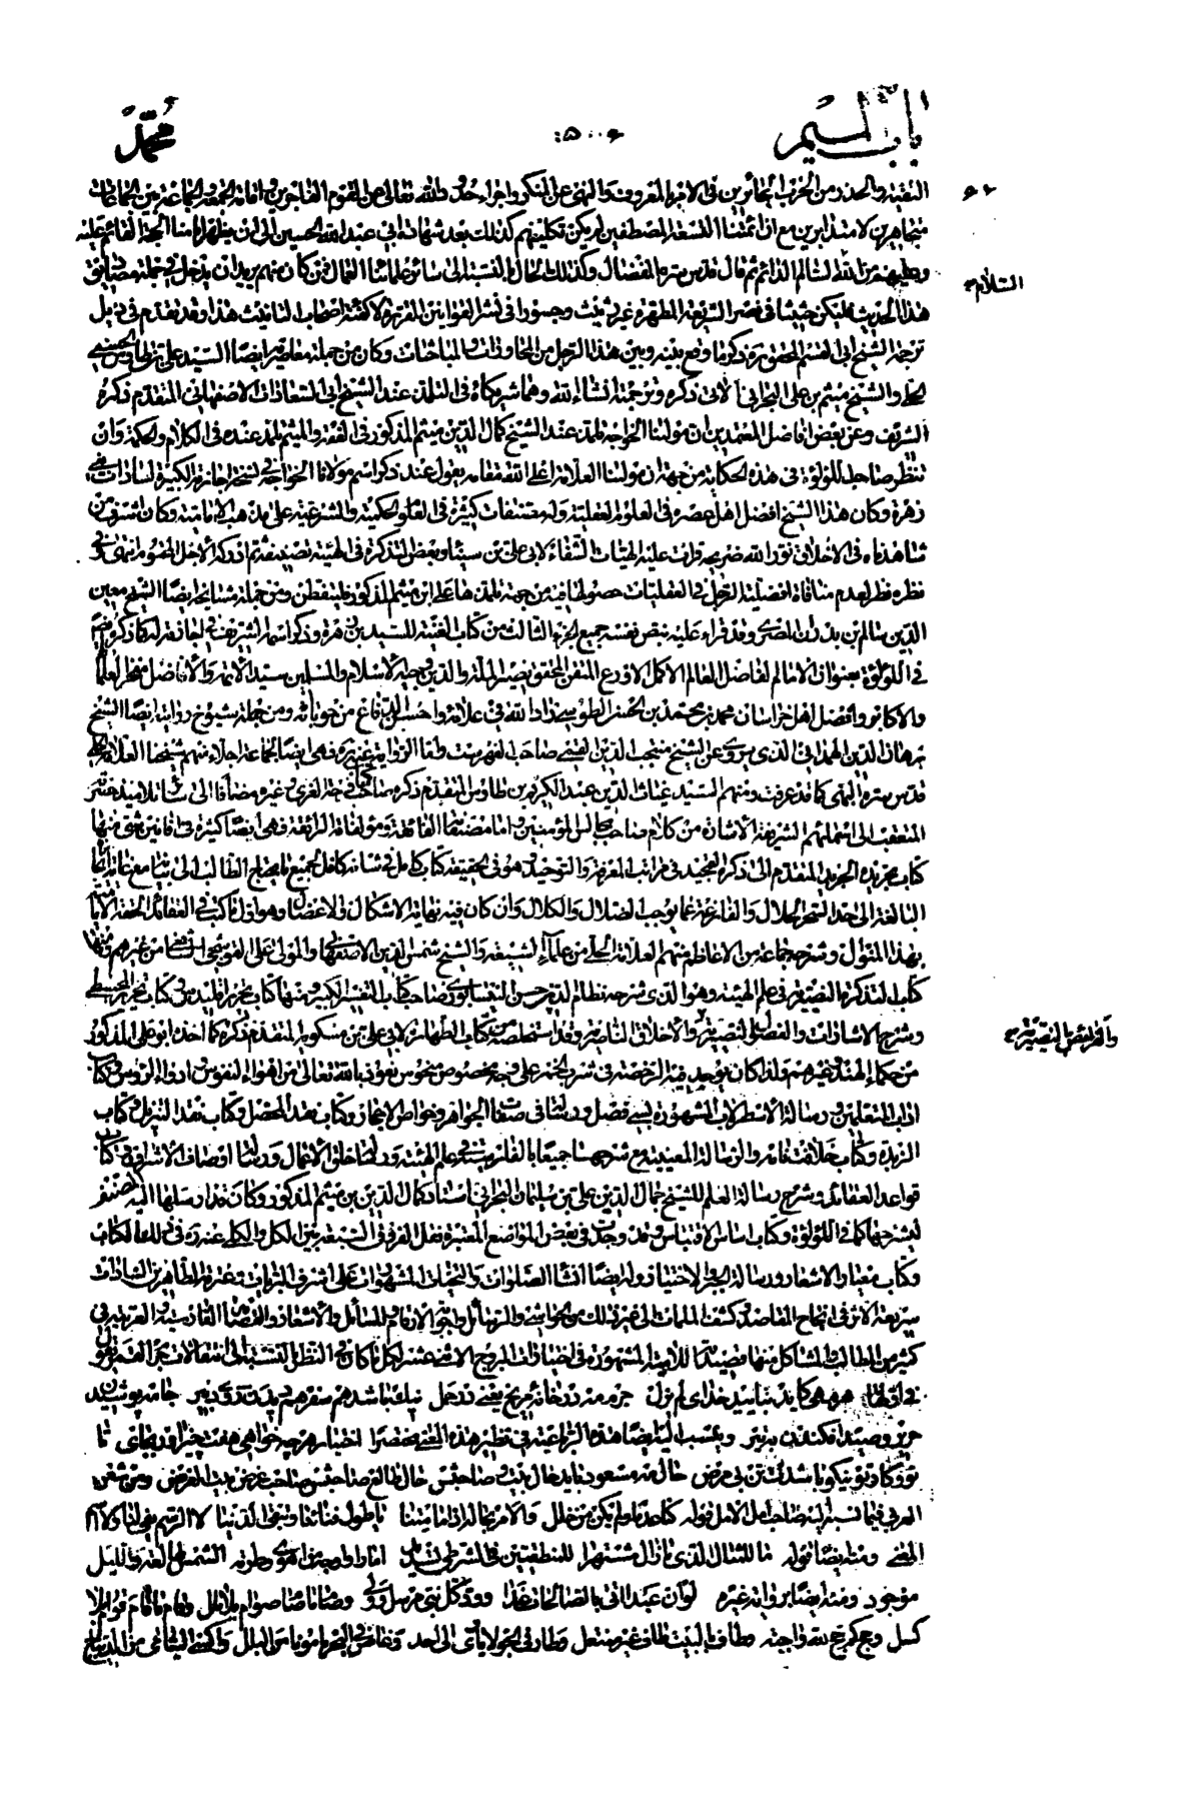 باب الميم
۵۰۶
محمّد
التقية والحذر من الحرب الجائرين في الامر بالمعروف والنهى عن المنكر واجراء حدود الله تعالى من القوم الفاجرين و اقامة الجمعة والجماعة بين الجماعات
متجاهرين لا مستدابرين مع ان ائمتنا التسعة المصطفين لم يكن تكليفهم كذلك بعد شهادة ابي عبد الله الحسين الى ان يظهر امامنا الحجة القائم عليه
وعليهم من الله السلام الدائم ثم قال قدس سره المفضال وكذلك الحال بالنسبة الى سائر علمائنا العمال فمن كان منهم يريد ان يدخل في جملة مصاديق
السلام
هذا الحديث فليكن حثيثا في نصر الشريعة المطهرة غير ريث وجسورا في نشر القوانين المقررة لا كقشة اصحاب التأنيث هذا وقد تقدم في ذيل
ترجمة الشيخ ابي القسم المحقق ره ذكر ما وقع بينه وبين هذا الرجل من المحاورات والمباحثات وكان من جملة معاصريه ايضا السيد على بن طاوس الحسني
الحلي والشيخ ميثم بن على البحراني الاتى ذكره وترجمته انشاء الله وهما شريكاه في التلمذ عند الشيخ ابي السعادات الاصفهاني المتقدم ذكره
الشريف وعن بعض افاضل المعتمدين ان مولانا الخواجه تلمذ عند الشيخ كمال الدين ميثم المذكور في الفقه والميثم تلمذ عنده في الكلام والحكمة وان
تنظر صاحب اللؤلؤة في هذه الحكاية من جهة ان مولانا العلامة اعلى الله مقامه يقول عند ذكر اسم مولانا الخواجة في نسخة اجازته الكبيرة لسادات بني
زهرة وكان هذا الشيخ افضل اهل عصره في العلوم العقلية وله مصنفات كثيرة في العلوم الحكمية والشرعية على مذهب الامامية وكان اشرف من
شاهدناه في الاخلاق نور الله ضريحه قرات عليه الهيات الشفاء لابى على بن سينا وبعض التذكرة في الهيئة تصنيفه ثم ادركه الاجل المحتوم انتهى وفي
نظره نظر لعدم منافاة افضلية الرجل في العقليات حصولها فيه من جهة تلمذها على ابن ميثم المذكور فليتفطن ومن جملة مشايخه ايضا الشيخ معين
الدين سالم بن بدران المصري وقد قراء عليه بنص نفسه جميع الجزء الثالث من كتاب الغنية للسيد بن زهرة وذكر اسمه الشريف في اجازته له كما ذكره ايضا
في اللؤلؤة بعنوان الامام الفاضل العالم الاكمل الاورع المتقن المحقق نصير الملة والدين وجيه الاسلام والمسلمين سيد الائمة والافاضل مفخر العلما
والاكابر وافضل اهل خراسان محمد بن محمد بن الحسن الطوسي زاد الله في علائه واحسن الدفاع عن حوبائه ومن جملة شيوخ روايته ايضا الشيخ
برهان الدين الهمداني الذي يروى عن الشيخ منتجب الدين القمي صاحب الفهرست واما الرواية عنه ره فهي ايضا لجماعة اجلاء منهم شيخنا العلامة الحلي
قدس سره البهي كما قد عرفت ومنهم السيد غياث الدين عبد الكريم بن طاوس المتقدم ذكره صاحب فرحة الغري وغيره مضافا الى سائر تلاميذ حضرته
المنعقب الى اسمائهم الشريفة الاشارة من كلام صاحب مجالس المؤمنين واما مصنفاته الفائقة ومؤلفاته الرائقة فهي ايضا كثيرة في افانين شتى منها
كتاب تجريده الجريد المتقدم الى ذكره المجيد في مراتب المعرفة والتوحيد وهو في الحقيقة كتاب كامل في شانه كافل لجميع ما يحتاج الطالب الى بيانه مع غاية ايجازه
البالغة الى حد السحر الحلال والفارغة عما يوجب الضلال والكلال وان كان فيه نهاية الاشكال والاعضال وهو اول ما كتب في العقائد الحقة الامامية
بهذا المنوال وشرحه جماعة من الاعاظم منهم العلامة الحلي من علماء الشيعة والشيخ شمس الدين الاصفهاني والمولى على القوشجي الشافعي من غيرهم ومنها
كتاب التذكرة النصيرية في علم الهيئة وهو الذي شرحه نظام الدين حسن النيسابوري صاحب كتاب التفسير الكبير ومنها كتاب تحرير اقليدس وكتاب تحرير المجسطي
وشرح الاشارات والفصول النصيرية والاخلاق الناصرية وقد استخلصه من كتاب الطهارة لابى على بن مسكويه المتقدم ذكره كما اخذه ابو على المذكور
والفرايض النصيرية
من حكماء الهند وغيرهم ولذا كان يوجد فيه الرخصة في شرب الخمر على وجه مخصوص منحوس نعوذ بالله تعالى من اهواء النفوس وادواء الرؤوس وكتاب
اداب المتعلمين ورسالة الاسطرلاب المشهورة بسي فصل ورسالة في صفات الجواهر وخواص الاحجار وكتاب نقد المحصل وكتاب نقد التنزيل وكتاب
الزبدة وكتاب خلافت نامه والرسالة المعينية مع شرحها جميعا بالفارسية في علم الهيئة ورسالة خلق الاعمال ورسالة اوصاف الاشراف وكتاب
قواعد العقائد وشرح رسالة العلم للشيخ جمال الدين على بن سليمان البحراني استاد كمال الدين بن ميثم المذكور وكان قد ارسلها اليه المصنف
ليشرحها كما في اللؤلؤة وكتاب اساس الاقتباس وقد وجدت في بعض المواضع المعتبرة نقل الفرق في التسعة بين الكل والكلى عنه ره في ذلك الكتاب
وكتاب معيار الاشعار ورسالة الجبر والاختيار وله ايضا انشاء الصلوات والتحيات المشهورات على اشرف البريات وعترته الطاهرين السادات
سريعة الاثر في انجاح المقاصد وكشف الملمات الى غير ذلك من الحواشي والرسائل واجوبة الارقام والمسائل والاشعار والقصائد الفارسية والعربية في
كثير من المطالب والمشاكل منها قصيدته اللامية المشهورة في اختيارات البروج الاثنى عشر لكل ما كان في النظر بالنسبة الى انتقالات جرم القمر يقول
في اولها هر مهى كايد بتاييد خداى لم يزل جرم مه در خانه مريخ يعنى در حمل نيك باشد هم سفر هم ديدن روى امير جامه پوشيدن
حرير وصيد افكندن بتير وينسب اليه ايضا هذه الرباعية في نظير هذه المعنى مختصرا اختيار هر چه خواهى هفت چيز اندر بجاى تا
بود كار تو نيكو باشدت تن بى مرض حال مه مسعود بايد حال بيت وصاحبش حال طالع صاحبش صاحب غرض بيت الغرض ومن شعره
العربي فيما نسبه اليه صاحب امل الامل قوله كنا عدما ولم يكن من خلل والامر بحاله اذا ما متنا يا طول فنائنا وتبقى الدنيا لا الرسم بقي لنا ولا اسم
المعنى ومنه ايضا قوله ما للمثال الذي ما زال مشتهرا للمنطقيين في الشرطي تسديد اما راوا وجه من اهوى وطرته الشمس طالعة والليل
موجود ومنه ايضا برواية غيره لو ان عبدا اتى بالصالحات غدا وود كل نبي مرسل وولي وصام ما صام صوام بلا ملل وقام ما قام قوام بلا
كسل وحج كم حجة لله واجبة وطاف بالبيت طاف غير منتعل وطار في الجو لا ياوى الى احد وغاص في البحر مامونا من البلل واكسى اليتامى من الديباج